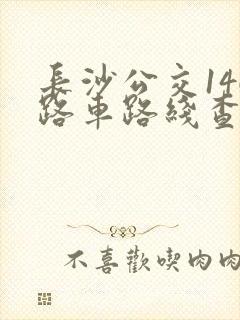 長沙公交14
路車路綫查
不喜歡喫肉肉